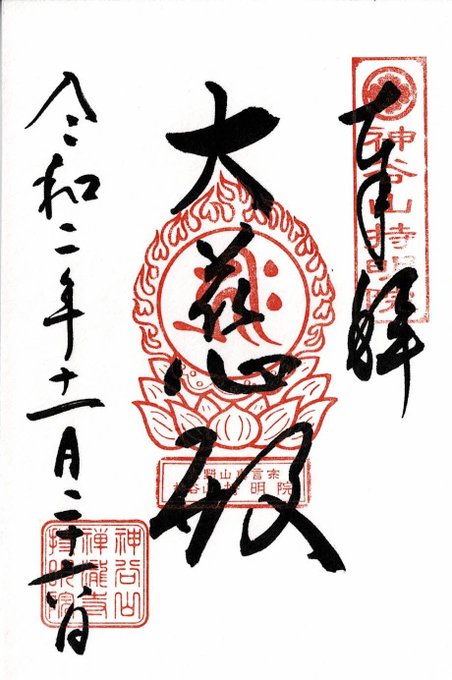 奉拝
神谷山持明院
大慈心殿
高野山真言宗
神谷山持明院
令和二年十一月二十六日
神谷山
禅瀧寺
持明院